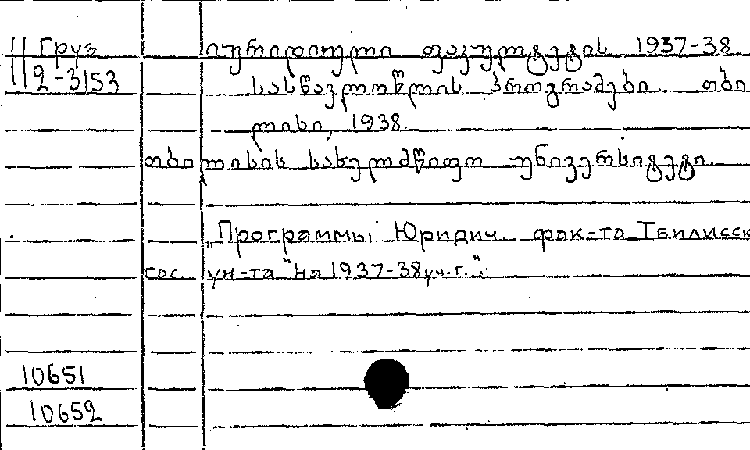 Груз იურიდიული ფაკულტეტის 1937-38
2-3153 სასწავლოწლის პროგრამები. თბი
ლისი, 1938.
თბილისის სახელმწიფო უნივერსიტეტი.
"Программы Юридич. фак-та Тбилисск
гос. ун-та "на 1937-38 уч.г.".
10651
10652